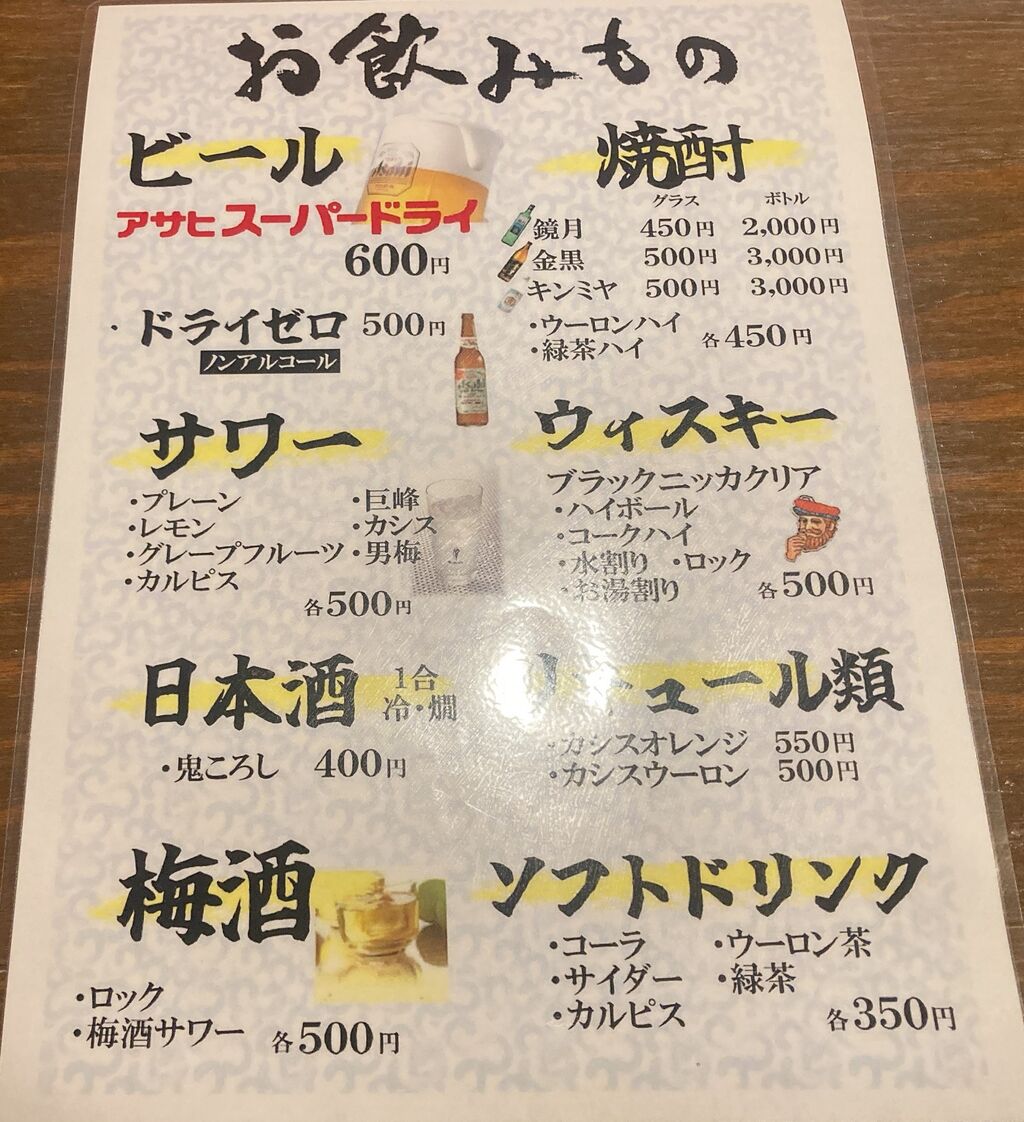 お飲みもの
ビール
アサヒスーパードライ
600円
・ドライゼロ 500円
ノンアルコール
焼酎
グラス ボトル
鏡月 450円 2,000円
金黒 500円 3,000円
キンミヤ 500円 3,000円
・ウーロンハイ
・緑茶ハイ
各450円
サワー
・プレーン ・巨峰
・レモン ・カシス
・グレープフルーツ ・男梅
・カルピス
各500円
ウィスキー
ブラックニッカクリア
・ハイボール
・コークハイ
・水割り ・ロック
・お湯割り
各500円
日本酒 1合
冷・燗
・鬼ころし 400円
リキュール類
・カシスオレンジ 550円
・カシスウーロン 500円
梅酒
・ロック
・梅酒サワー 各500円
ソフトドリンク
・コーラ ・ウーロン茶
・サイダー ・緑茶
・カルピス
各350円